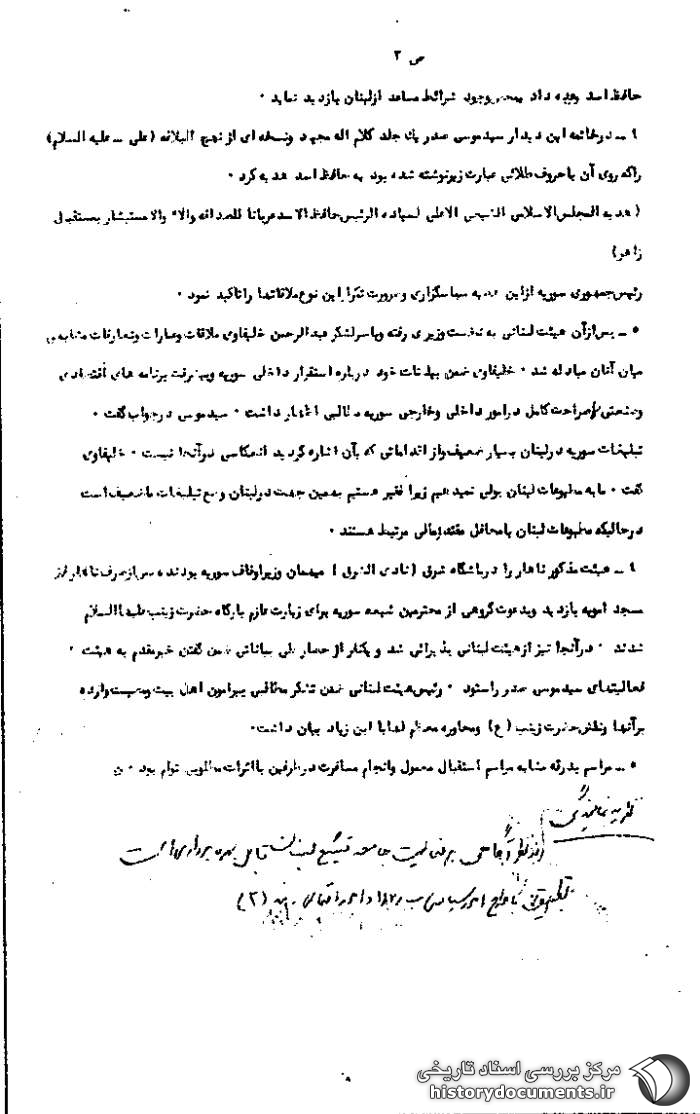 ص ۳
حافظ اسد وعده داد بمحض وجود شرائط مساعد ازلبنان بازدید نماید ۰
۴ ــ درخاتمه این دیدار سیدموسی صدر یك جلد کلام اله مجید ونسخه ای از نهج البلاغه (علی ــ علیه السلام)
راکه روی آن باحروف طلائی عبارت زیرنوشته شده بود به حافظ اسد هدیه کرد ۰
(هدیه المجلس الاسلامی الشیعی الاعلی لسیاده الرئیس حافظ الاسد عربانا للصداقه والا والاستبشار بمستقبل
زاهر)
رئیس جمهوری سوریه ازاین هدیه سپاسگزاری وضرورت تکرار این نوع ملاقاتها را تاکید نمود ۰
۵ ــ پس ازآن هیئت لبنانی به نخست وزیری رفته وباسرلشکر عبدالرحمن خلیفاوی ملاقات وتعارفات مشابهی
میان آنان مبادله شد ۰ خلیفاوی ضمن بیانات خود درباره استقرار داخلی سوریه وپیشرفت برنامه های اقتصادی
وصنعتی وصراحت کامل درامور داخلی وخارجی سوریه مطالبی اظهار داشت ۰ سیدموسی درجواب گفت ۰
تبلیغات سوریه درلبنان بسیار ضعیف واز اقداماتی که بآن اشاره کردید انعکاسی درآنجا نیست ۰ خلیفاوی
گفت ۰ مابه مطبوعات لبنان پولی نمیدهیم زیرا فقیر هستیم بهمین جهت درلبنان وضع تبلیغات ما ضعیف است
درحالیکه مطبوعات لبنان بامحافل مالی مرتبط هستند ۰
۶ ــ هیئت مذکور ناهار را درباشگاه شرق (نادی الشرق) میهمان وزیراوقاف سوریه بودند و پس ازصرف ناهار از
مسجد امویه بازدید وبدعوت گروهی از محترمین شیعه سوریه برای زیارت عازم بارگاه حضرت زینب علیها السلام
شدند ۰ درآنجا نیز ازهیئت لبنانی پذیرائی شد و یکنفر از حضار طی بیاناتی ضمن گفتن خیرمقدم به هیئت ۰
فعالیتهای سیدموسی صدر راستود ۰ رئیس هیئت لبنانی ضمن تشکر مطالبی پیرامون اهل بیت ومصیبت وارده
برآنها ونقش حضرت زینب (ع) ومحاوره معظم لها با ابن زیاد بیان داشت۰
۵ ــ مراسم بدرقه مشابه مراسم استقبال معمول وانجام مسافرت درطرفین بااثرات مطلوبی توام بود ۰
نظریه نمایندگی
ازنظر آگاهی برفعالیت جامعه تشیع لبنان قابل بهره برداری است
(۲)
مرکز بررسی اسناد تاریخی
historydocuments.ir